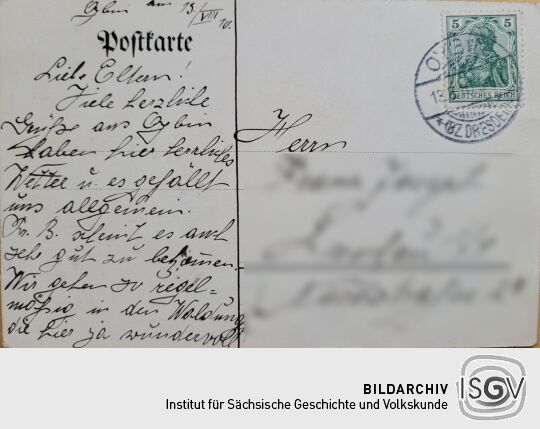 Oybin am 13/VIII 10.
Postkarte
Liebe Eltern!
Viele herzliche
Grüße aus Oybin
haben hier herrliches
Wetter u. es gefällt
uns allgemein.
Fr. B. scheint es auch
sehr gut zu bekommen.
Wir gehen so regel=
mäßig in den Waldung
die hier ja wundervoll
Herrn
5 5
DEUTSCHES REICH
OYB
13.8
*(BZ DRESDEN
BILDARCHIV
Institut für Sächsische Geschichte und Volkskunde
ISGV